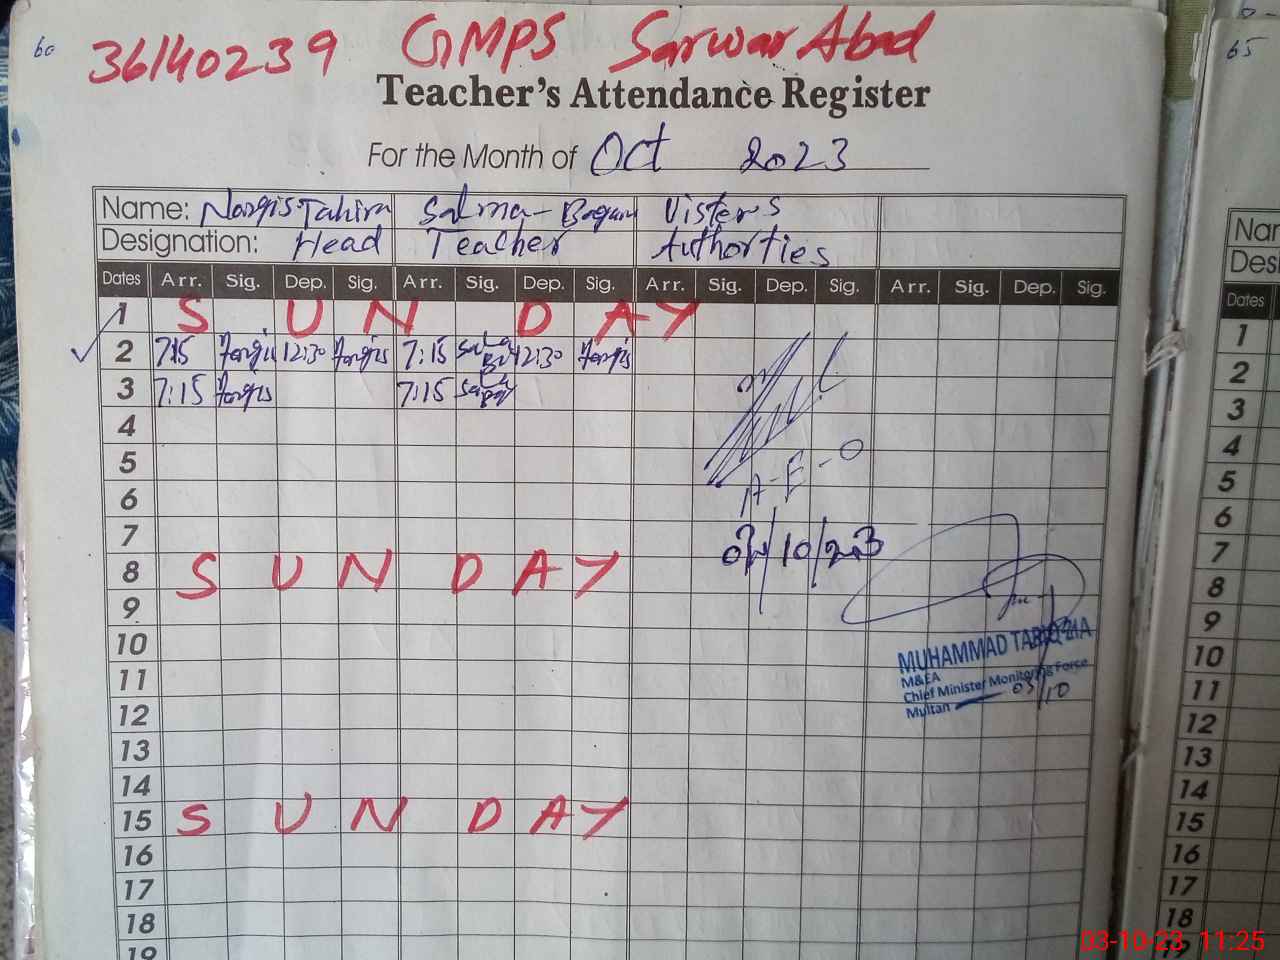 60
36140239 GMPS Sarwar Abad
Teacher's Attendance Register
For the Month of Oct 2023
Name: Nargis Tahira Salma-Bagum Visters
Designation: Head Teacher Authorties
Dates Arr. Sig. Dep. Sig. Arr. Sig. Dep. Sig. Arr. Sig. Dep. Sig. Arr. Sig. Dep. Sig.
1 S U N D A Y
2 7:15 12:30 7:15 12:30
3 7:15 7:15
4
5
6
7
8 S U N D A Y
9
10
11
12
13
14
15 S U N D A Y
16
17
18
19
A-E-O
MUHAMMAD
M&EA
Chief Minister Monitoring Force
Multan 03/10
65
Dates
1
2
3
4
5
6
7
8
9
10
11
12
13
14
15
16
17
18
03-10-23 11:25